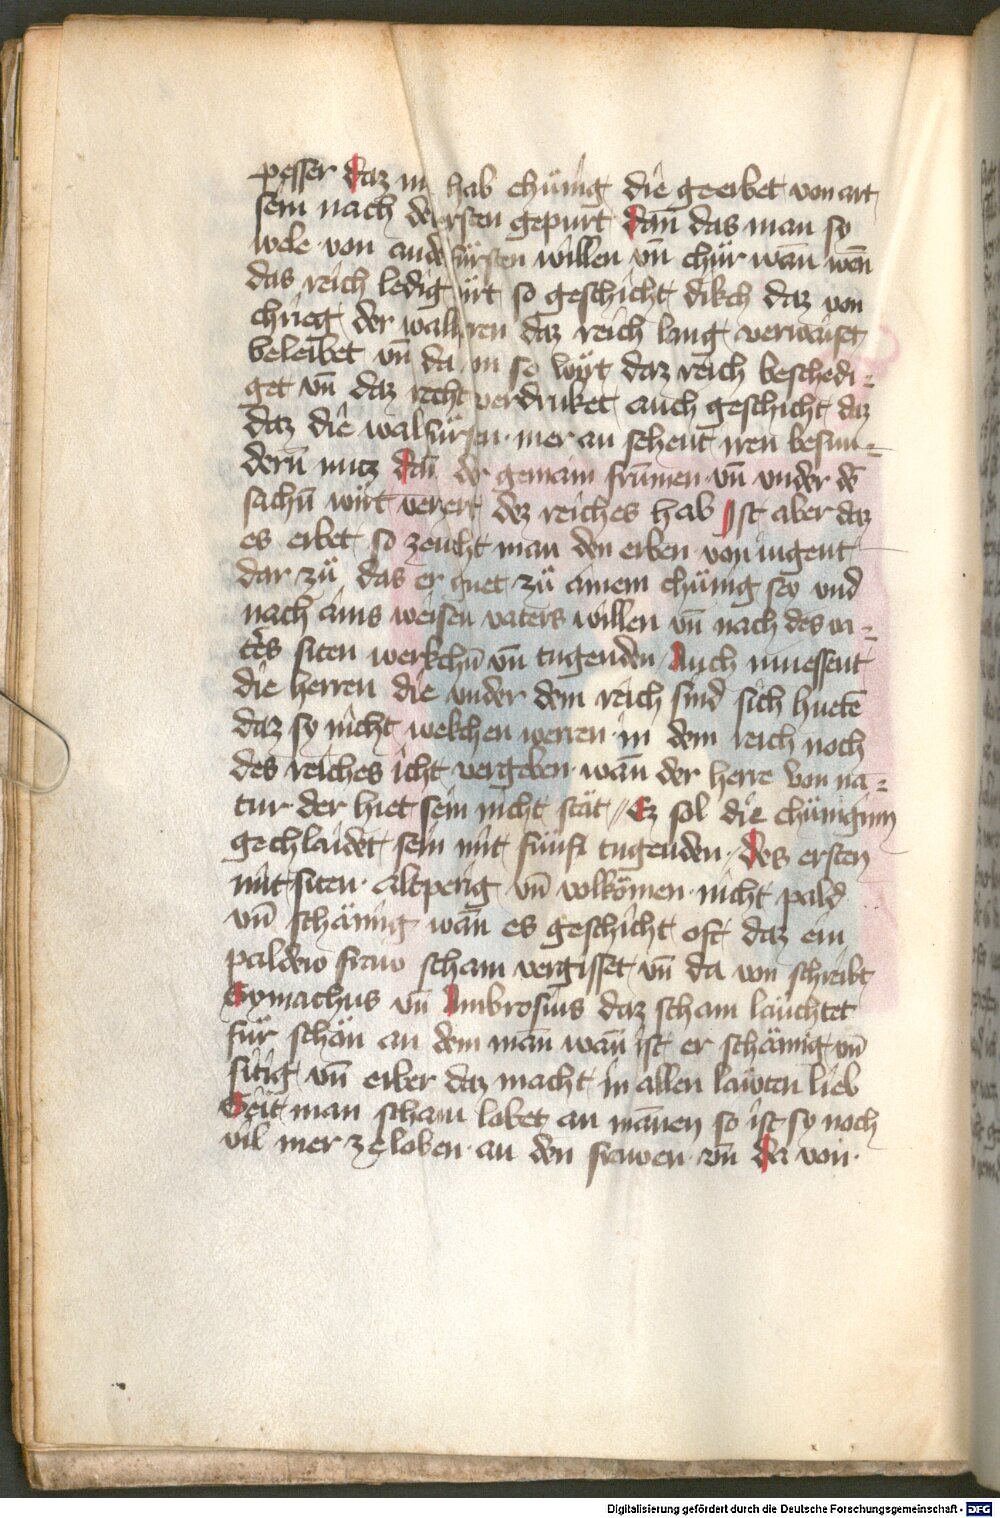 pesser daz m hab chünig die geerbet von art
sein nach der ersten gepurt dañ das man sy
wele von ander fürsten willen vñ chür wañ weñ
das reich ledig irt so geschicht dikch daz von
chrieg der walherren daz reich lang verwaiset
beleibet vñ da von so wirt daz reich beschedi-
get vñ daz recht verdruket auch geschicht daz
daz die walfürsen mer an sehent iren besun-
derñ nutz dañ der gemain frumen vñ vnder dē
sachñ wirt verert dez reiches hab Ist aber daz
es erbet so zeucht man den erben von iugent
dar zü das er guet zü ainem chünig sey vnd
nach ains weisen vaters willen vñ nach des va-
ters siten werkchñ vñ tugenden Auch muessent
die herren die vnder dem reich sind sich huetē
daz sy nicht welchen werren in dem reich noch
des reiches icht vergeben wañ der herre von na-
tur der hiet sein nicht stät // Ez sol die chüniginn
gechlaidet sein mit fünf tugenden Des ersten
mit siten altperig vñ volkömen nicht pald
vñ schämig wañ es geschicht oft daz ein
paldew fraw scham vergisset vñ da von schreibt
Symachus vñ Ambrosius daz scham läuchtet
für schön an dem mañ wañ ist er schämig vñ
sitig vñ erber daz macht in allen läwten lieb
Seit man scham lobet an mañen so ist sy noch
vil mer ze loben an den frawen vñ da von
Digitalisierung gefördert durch die Deutsche Forschungsgemeinschaft - DFG